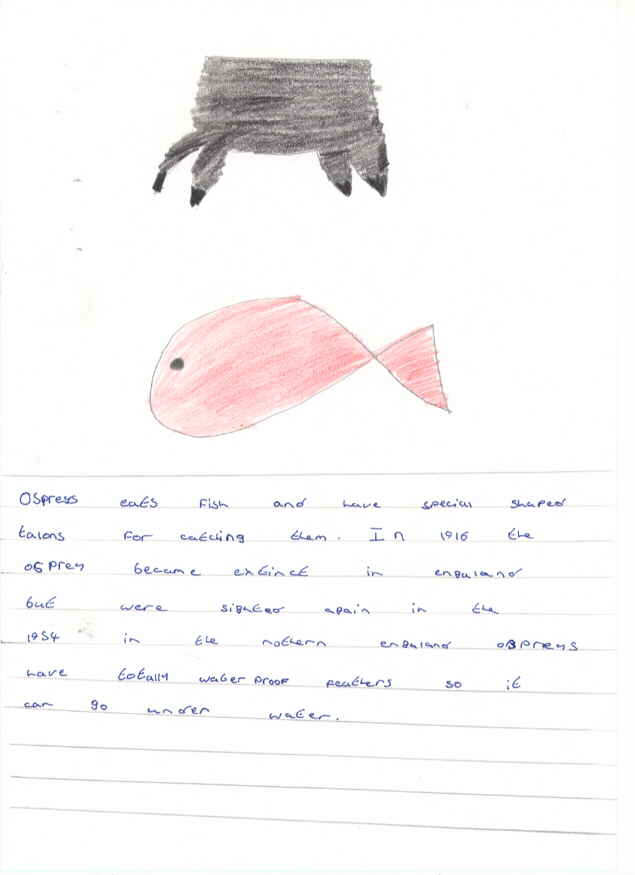 Ospreys eats Fish and have special shaped
talons For catching them. In 1916 the
osprey became extinct in enguland
but were sighted again in the
1954 in the nothern enguland ospreys
have totally waterproof feathers so it
can go under water.